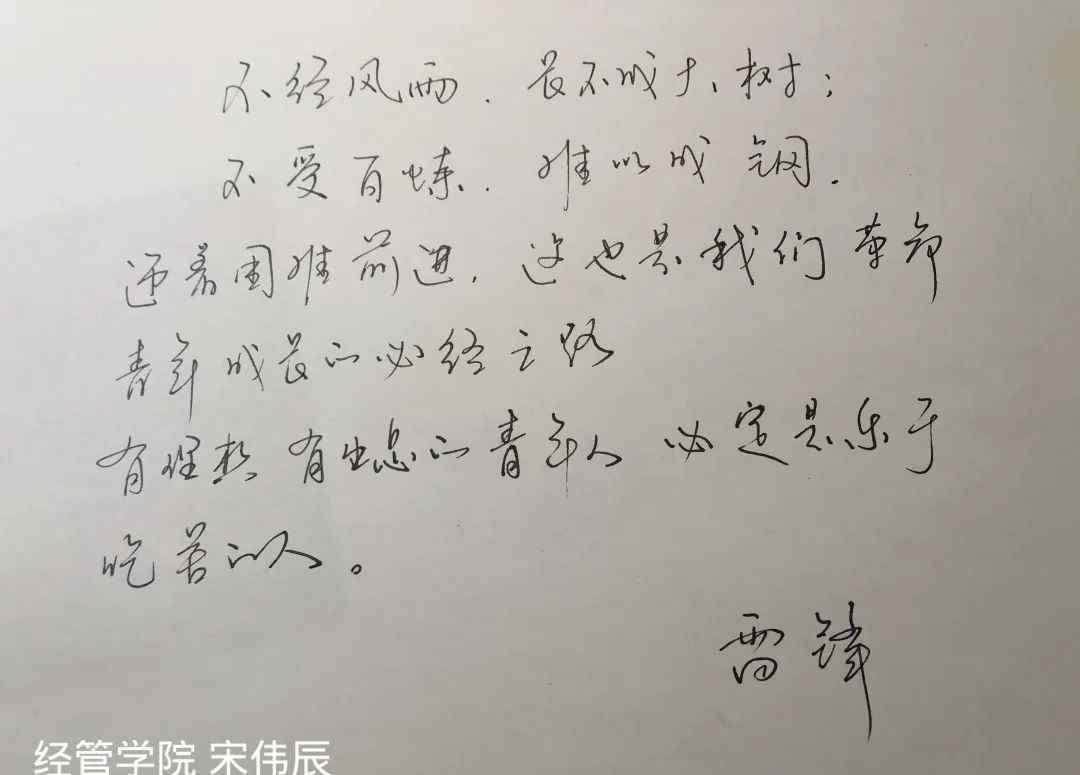 不经风雨、长不成大树；
不受百炼、难以成钢.
迎着困难前进，这也是我们革命
青年成长的必经之路
有理想有出息的青年人必定是乐于
吃苦的人。
雷锋
经管学院 宋伟辰